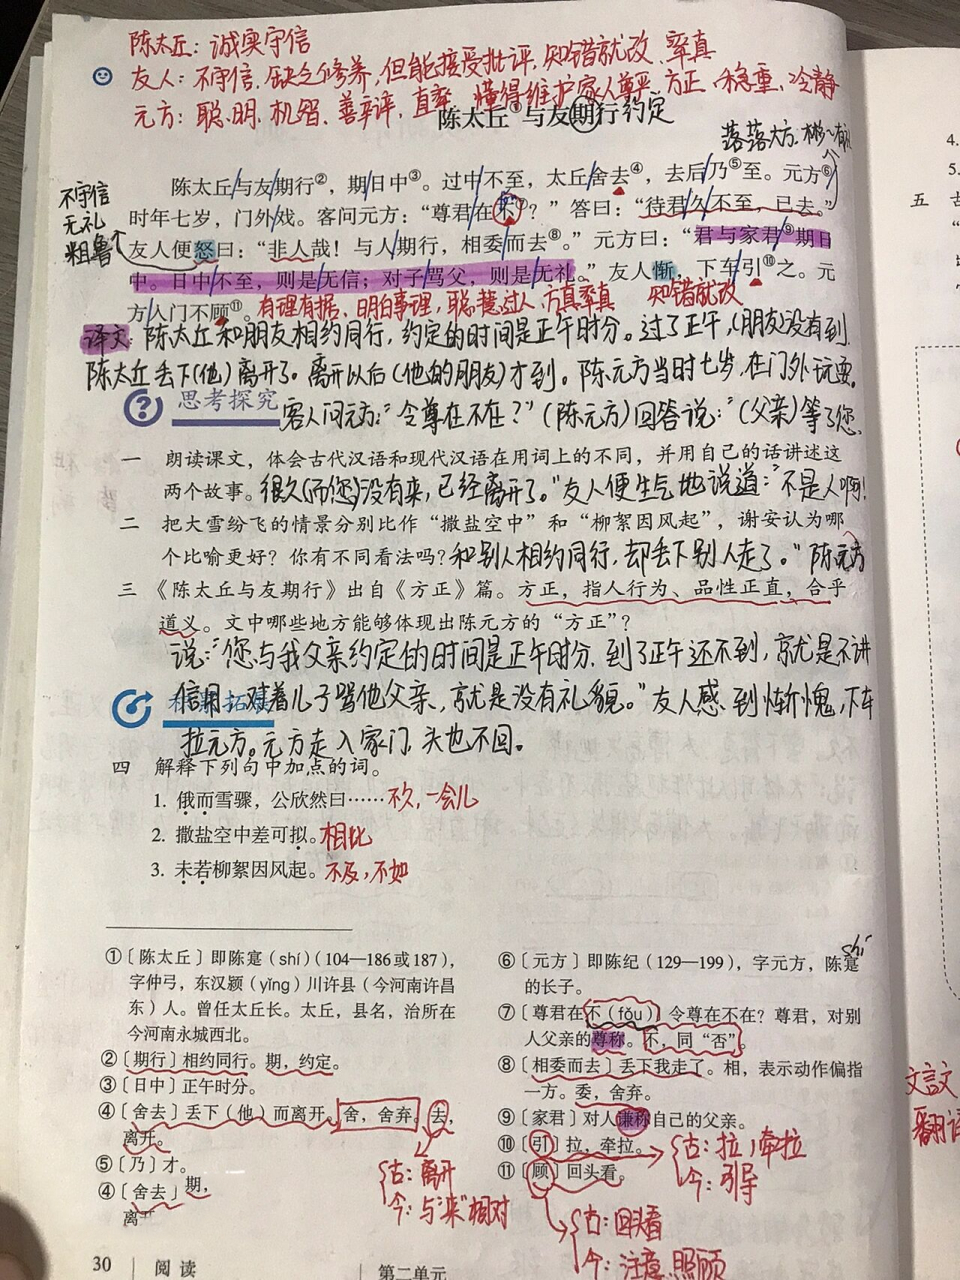 陈太丘：诚实守信
友人：不守信、缺乏修养，但能接受批评，知错就改、率真
元方：聪明、机智、善辩、直率、懂得维护家人尊严、方正、稳重、冷静
陈太丘①与友期行 约定
落落大方、彬~有礼
陈太丘/与友/期行②，期/日中③。过中/不至，太丘/舍去④，去后/乃⑤至。元方⑥/
不守信
无礼
粗鲁
时年七岁，门外/戏。客问元方：“尊君/在不⑦？”答曰：“待君/久/不至，已去。”
友人便怒曰：“非人哉！与人/期行，相委/而去⑧。”元方曰：“君与家君⑨期日
中。日中/不至，则是/无信；对子/骂父，则是/无礼。”友人惭，下车/引⑩之。元
方/入门不顾⑪。有理有据、明白事理，聪慧过人，方真率真 知错就改
译文：陈太丘和朋友相约同行，约定的时间是正午时分。过了正午，(朋友)没有到，
陈太丘丢下(他)离开了。离开以后(他的朋友)才到。陈元方当时七岁，在门外玩耍。
思考探究
客人问元方：“令尊在不在？”(陈元方)回答说：“(父亲)等了您
一 朗读课文，体会古代汉语和现代汉语在用词上的不同，并用自己的话讲述这
两个故事。很久(而您)没有来，已经离开了。”友人便生气地说道：“不是人啊！
二 把大雪纷飞的情景分别比作“撒盐空中”和“柳絮因风起”，谢安认为哪
个比喻更好？你有不同看法吗？和别人相约同行，却丢下别人走了。”陈元方
三 《陈太丘与友期行》出自《方正》篇。方正，指人行为、品性正直，合乎
道义。文中哪些地方能够体现出陈元方的“方正”？
说：“您与我父亲约定的时间是正午时分，到了正午还不到，就是不讲
信用，对着儿子骂他父亲，就是没有礼貌。”友人感到惭愧，下车
拉元方。元方走入家门，头也不回。
四 解释下列句中加点的词。
1. 俄而雪骤，公欣然曰……不久，一会儿
2. 撒盐空中差可拟。相比
3. 未若柳絮因风起。不及，不如
①〔陈太丘〕即陈寔（shí）（104—186或187），
字仲弓，东汉颍（yǐng）川许县（今河南许昌
东）人。曾任太丘长。太丘，县名，治所在
今河南永城西北。
②〔期行〕相约同行。期，约定。
③〔日中〕正午时分。
④〔舍去〕丢下（他）而离开。舍，舍弃。去，
离开。
⑤〔乃〕才。
④〔舍去〕期，
离开
古：离开
今：与“来”相对
shí
⑥〔元方〕即陈纪（129—199），字元方，陈寔
的长子。
⑦〔尊君在不（fǒu）〕令尊在不在？尊君，对别
人父亲的尊称。不，同“否”。
⑧〔相委而去〕丢下我走了。相，表示动作偏指
一方。委，舍弃。
⑨〔家君〕对人谦称自己的父亲。
⑩〔引〕拉，牵拉。
⑪〔顾〕回头看。
古：拉，牵拉
今：引导
古：回头看
今：注意、照顾
30 阅读 第二单元
4.
5.
五 古
文言文
翻译